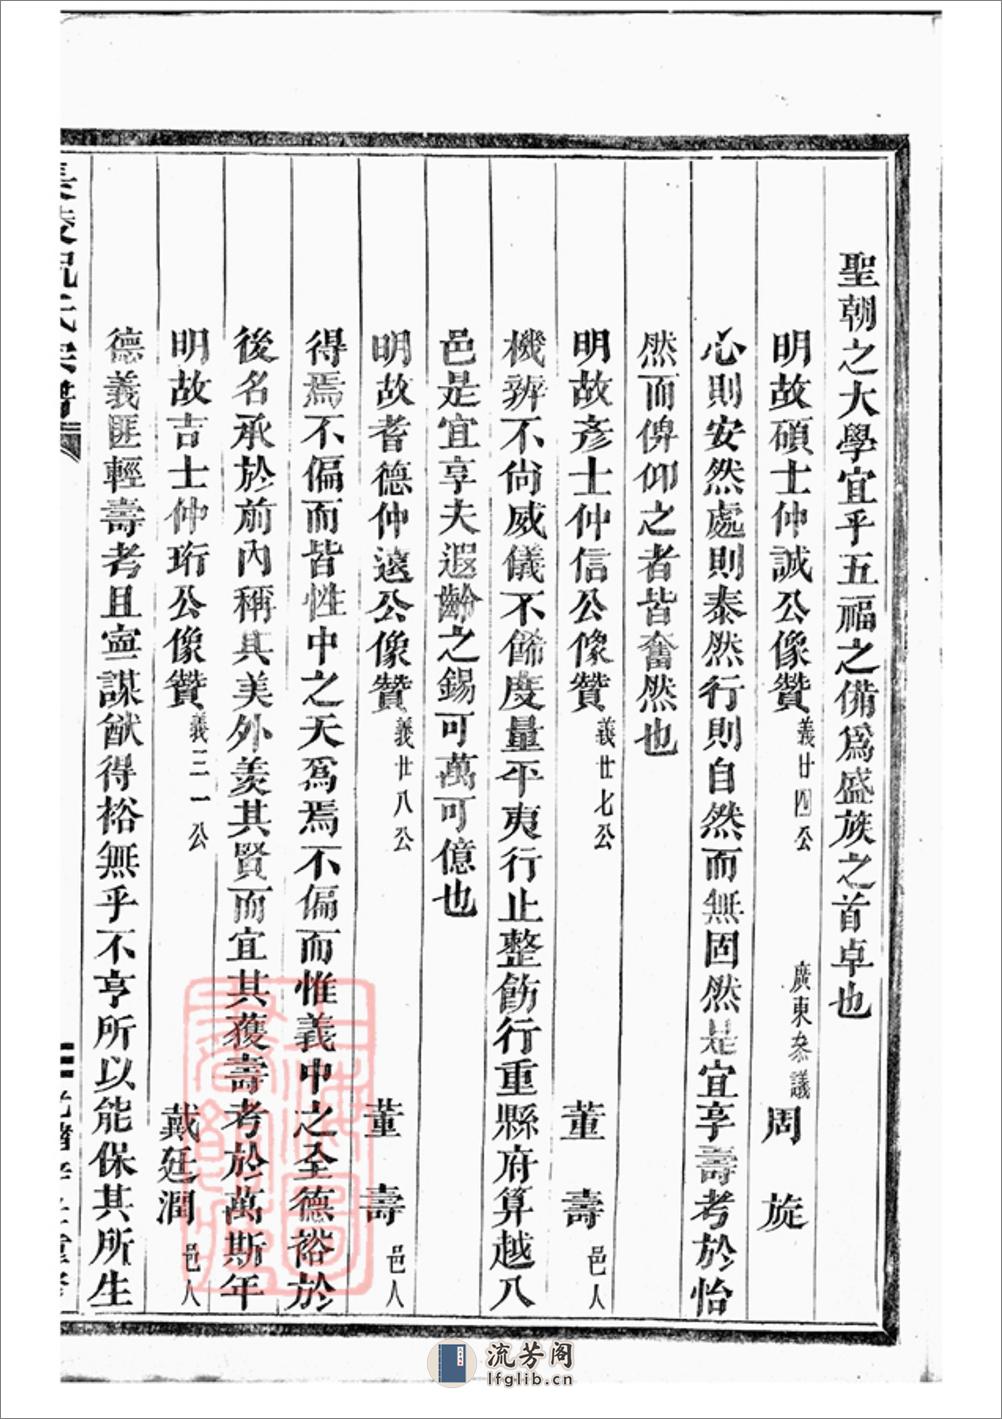 聖朝之大學宜乎五福之備為盛族之首卓也
明故碩士仲誠公像贊 義廿四公 廣東叅議 周旋
心則安然處則泰然行則自然而無固然是宜享壽考於怡
然而俾仰之者皆奮然也
明故彥士仲信公像贊 義廿七公 董壽 邑人
機辨不尙威儀不餙度量平夷行止整飭行重縣府算越八
邑是宜享夫遐齡之錫可萬可億也
明故耆德仲遠公像贊 義廿八公 董壽 邑人
得焉不偏而皆性中之天爲焉不偏而惟義中之全德裕於
後名承於前內稱其美外羨其賢而宜其獲壽考於萬斯年
明故吉士仲珩公像贊 義三一公 戴廷潤 邑人
德義匪輕壽考且寧謀猷得裕無乎不亨所以能保其所生
氏宗譜
流芳阁
lfglib.cn